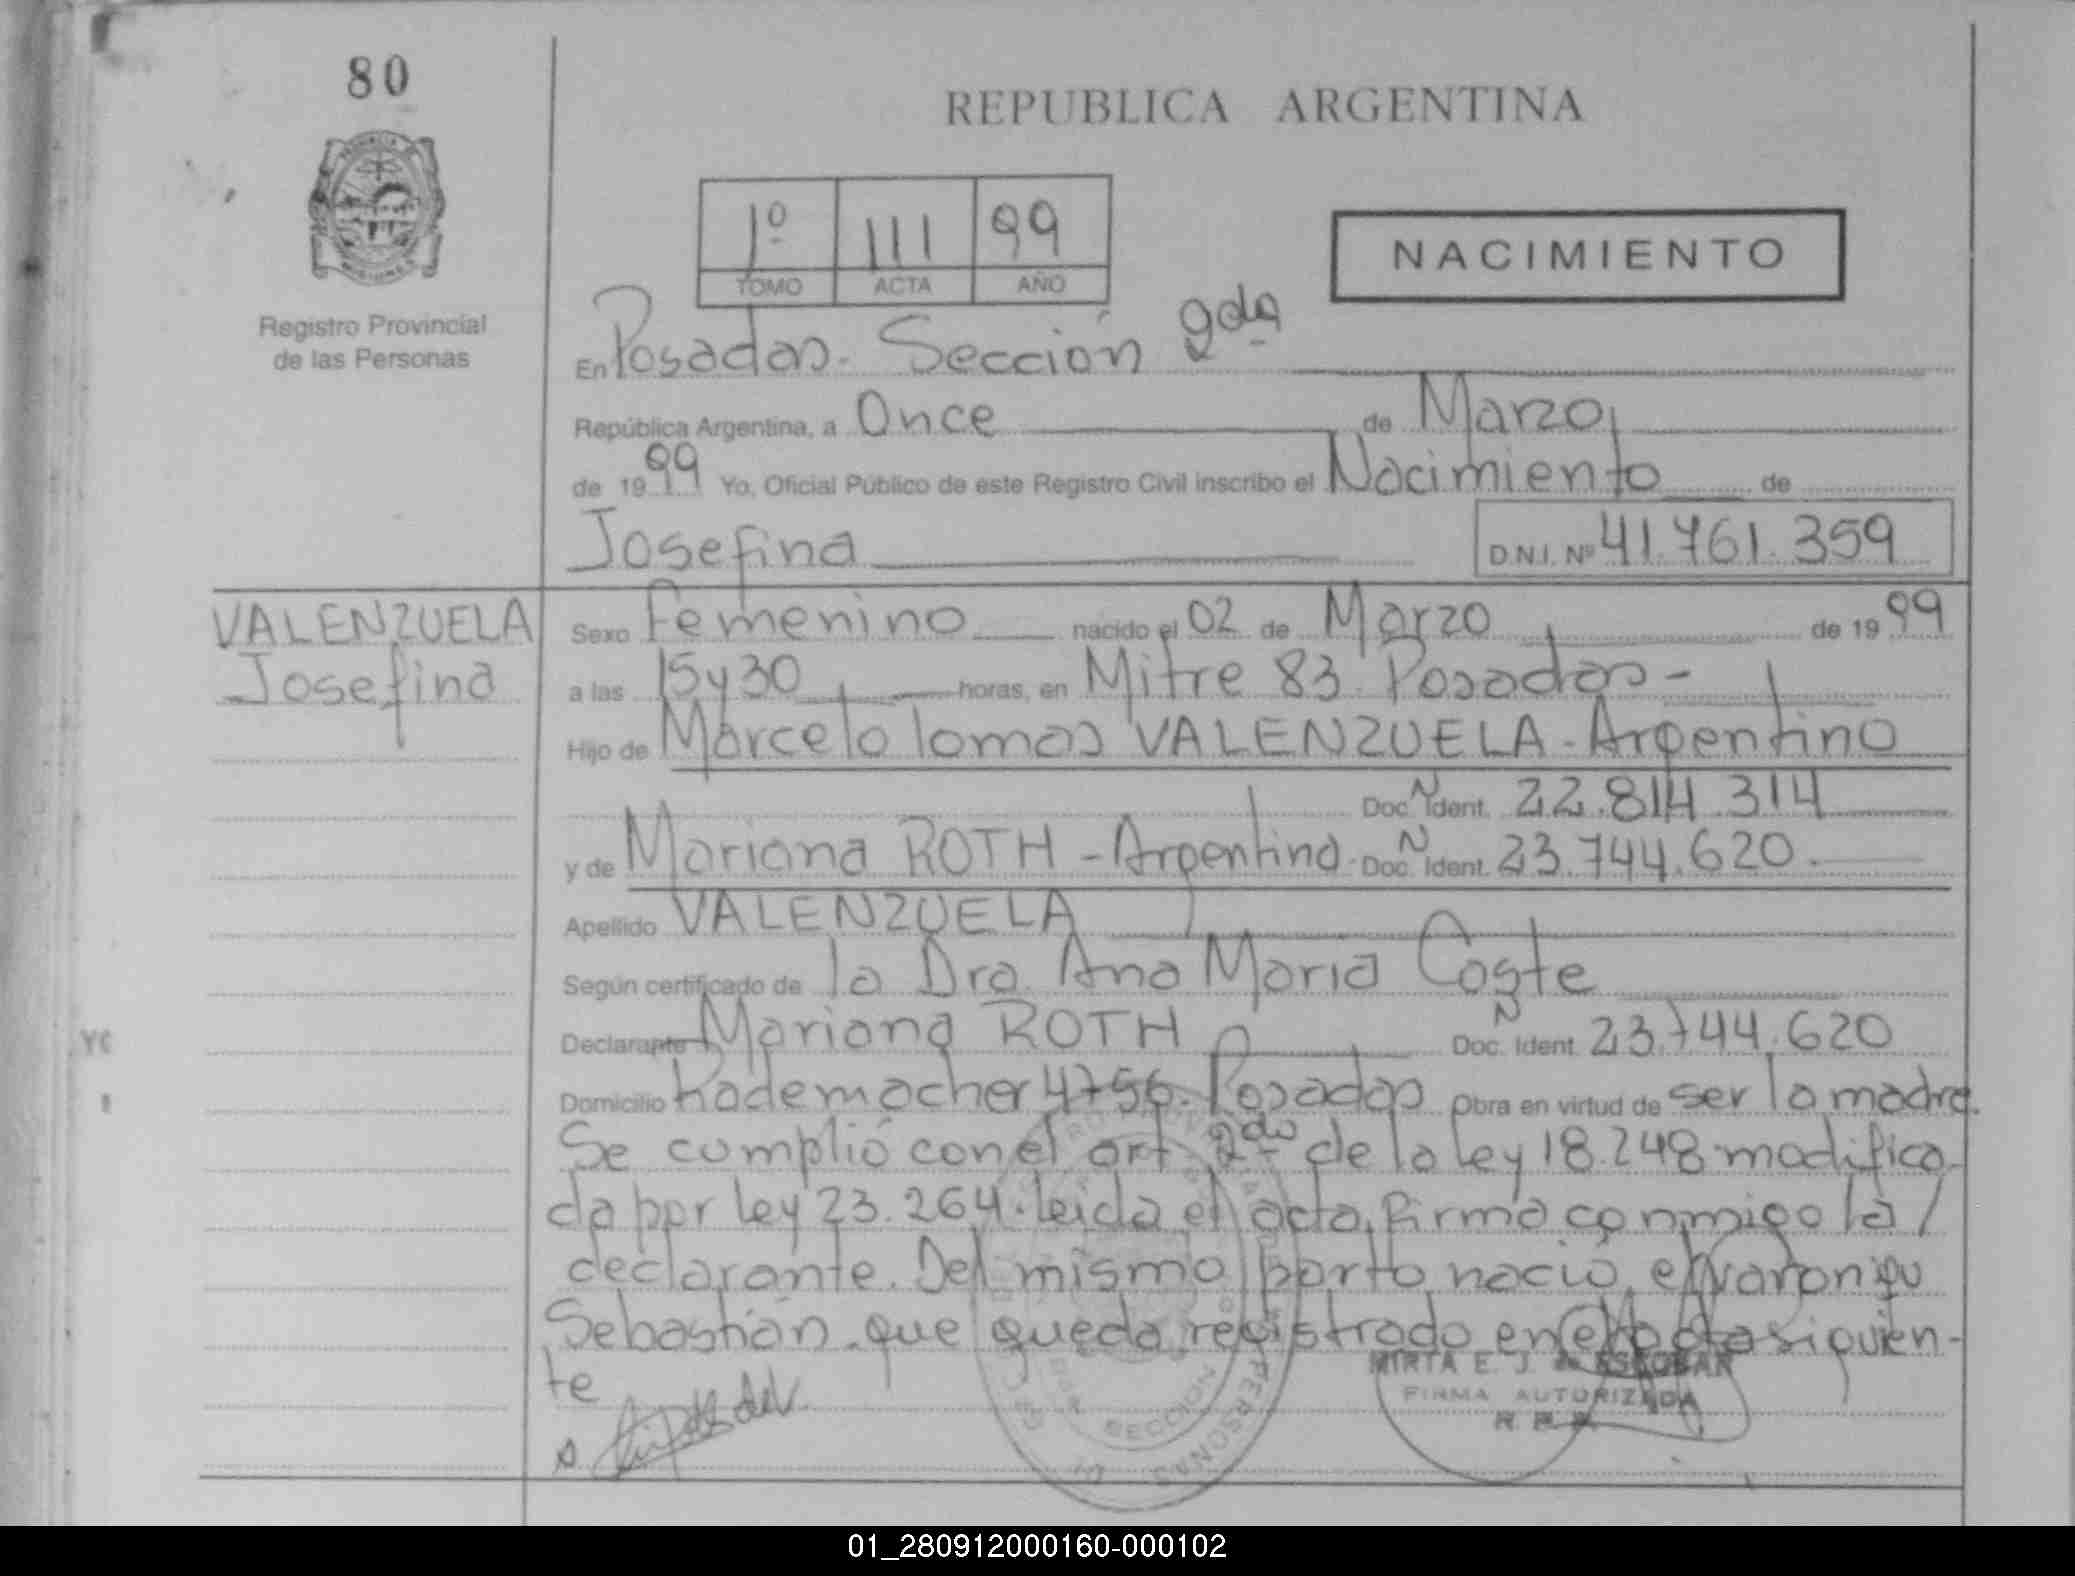 80
REPUBLICA ARGENTINA
1º 111 99
TOMO ACTA AÑO
NACIMIENTO
Registro Provincial
de las Personas
En Posadas. Sección 2da
República Argentina, a Once de Marzo
de 1999 Yo, Oficial Público de este Registro Civil inscribo el Nacimiento de
Josefina D.N.I. Nº 41.761.359
VALENZUELA
Josefina
Sexo Femenino nacido el 02 de Marzo de 1999
a las 15y30 horas, en Mitre 83. Posadas-
Hijo de Marcelo Tomas VALENZUELA - Argentino
Doc. N Ident. 22.814.314
y de Mariana ROTH - Argentina. Doc. N Ident. 23.744.620.
Apellido VALENZUELA
Según certificado de la Dra. Ana Maria Coste
Declarante Mariana ROTH Doc. N Ident. 23.744.620
Domicilio Rademacher 4756. Posadas Obra en virtud de ser la madre.
Se cumplió con el art. 2do de la ley 18.248 modifica-
da por ley 23.264. leida el acta, firma conmigo la /
declarante. Del mismo parto nació el varon
Sebastián. que queda registrado en el acta siguien-
te
MIRTA E. J. de ESCOBAR
FIRMA AUTORIZADA
SECCION
PERSONAS
01_280912000160-000102